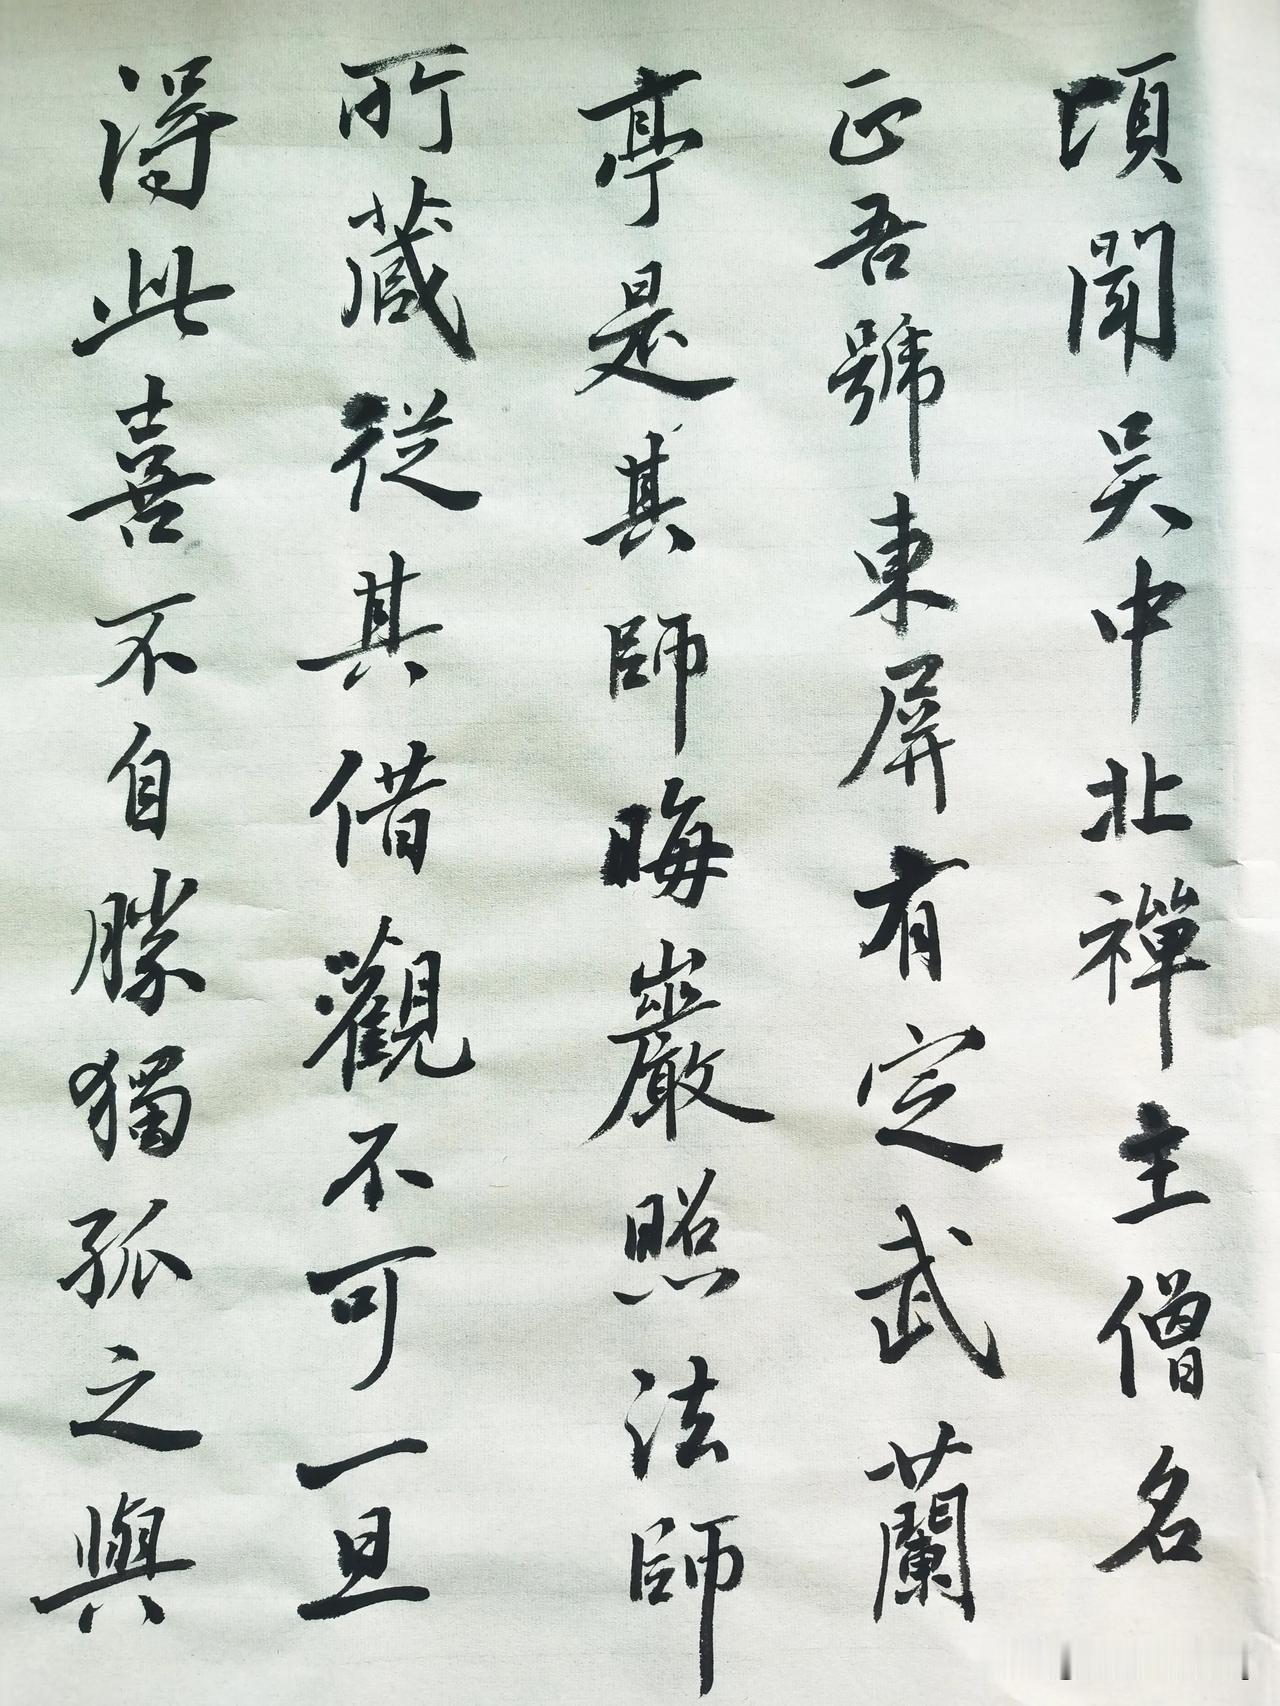 頃聞吳中北禪主僧名
正吾號東屏有定武蘭
亭是其師晦巖照法師
所藏從其借觀不可一旦
得此喜不自勝獨孤之與